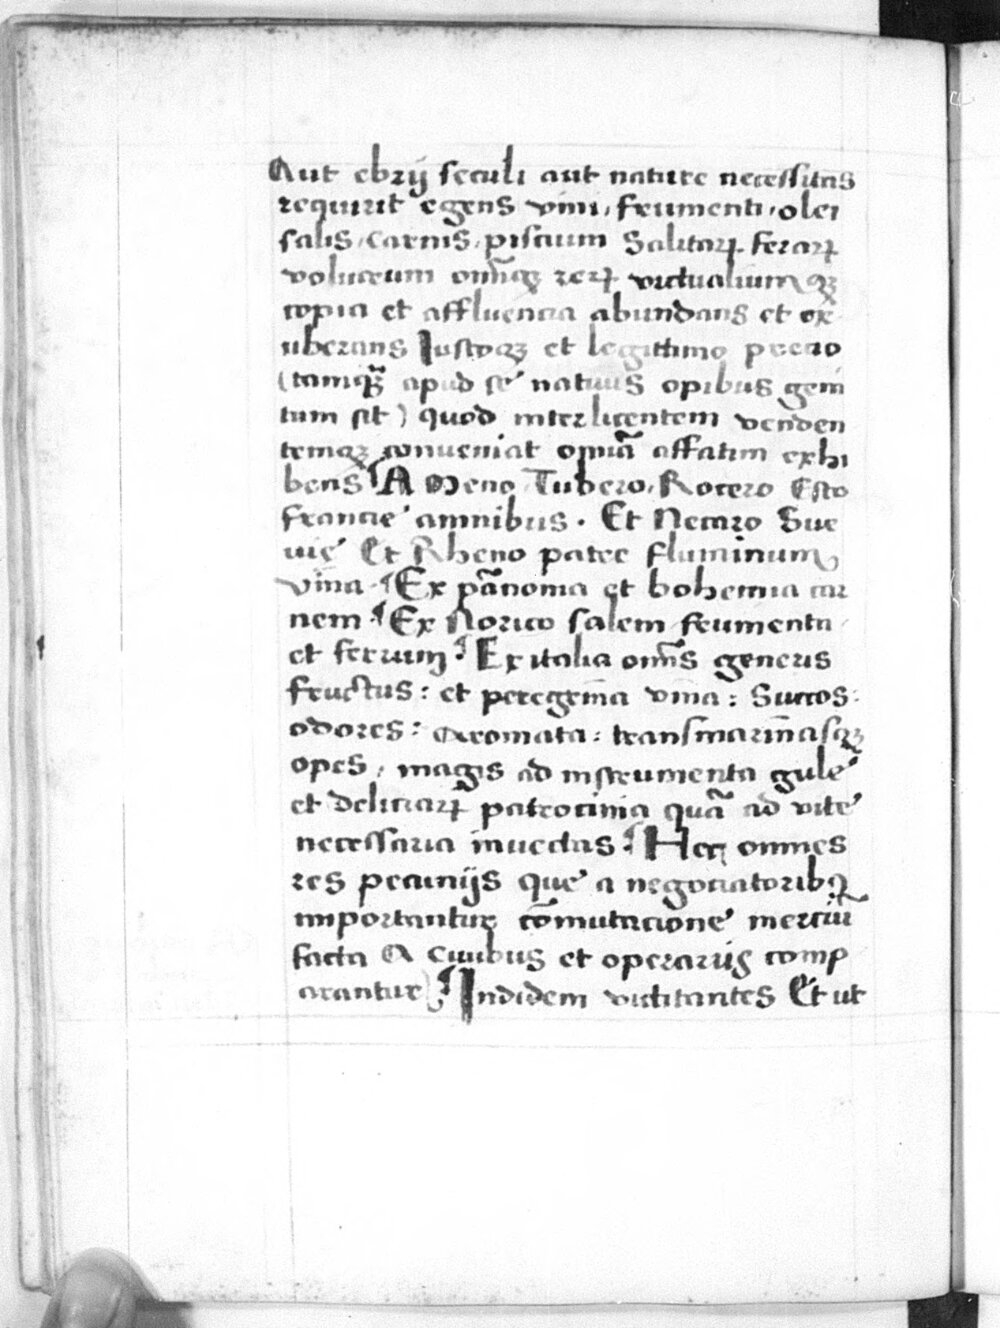 Aut ebrij seculi aut nature necessitas
requirit egens vini, frumenti, olei
salis, Carnis, piscium Salitaꝝ feraꝝ
volucrum om̄iūqꝫ reꝝ victualiumqꝫ
copia et affluencia abundans et ex
uberans Iustoqꝫ et legittimo precio
(tamqꝫ̄ apud se natiuis opibus geni
tum sit) quod inter licentem venden
temqꝫ conueniat omīa affatim exhi
bens ¶ A Meno, Tubero, Rotero Esto
francie amnibus. Et Necaro Sue
uie Et Rheno patre fluminum
vina ¶ Ex pānonia et bohemia car
nem ¶ Ex Norico salem frumentu
et ferrum ¶ Ex italia om̄s generis
fructus: et peregrina vina: Succos:
odores: Aromata: transmarinasqꝫ
opes, magis ad instrumenta gule
et deliciaꝝ patrocinia quā ad vite
necessaria inuectas ¶ Hec omnes
res pecunijs que a negociatoribꝰ
importantur cōmutacione merciū
facta A Ciuibus et operarijs comp
arantur) ¶ Indidem victitantes Et ut